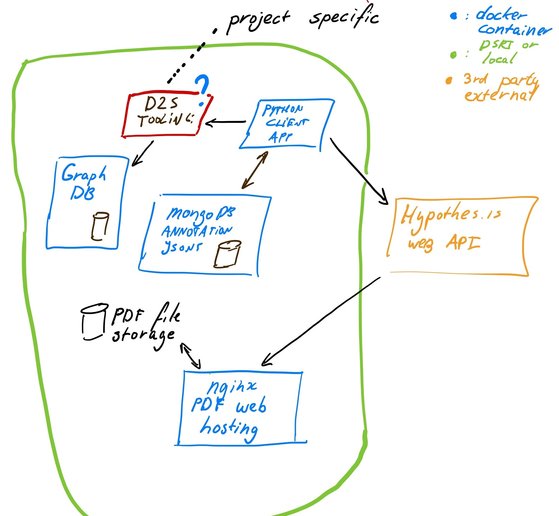 project specific
: docker
container
: DSRI or
local
: 3rd party
external
?
D2S
TOOLING:
PYTHON
CLIENT
APP
Graph
DB
mongoDB
ANNOTATION
JSONS
Hypothes.is
web API
PDF file
storage
nginx
PDF web
hosting